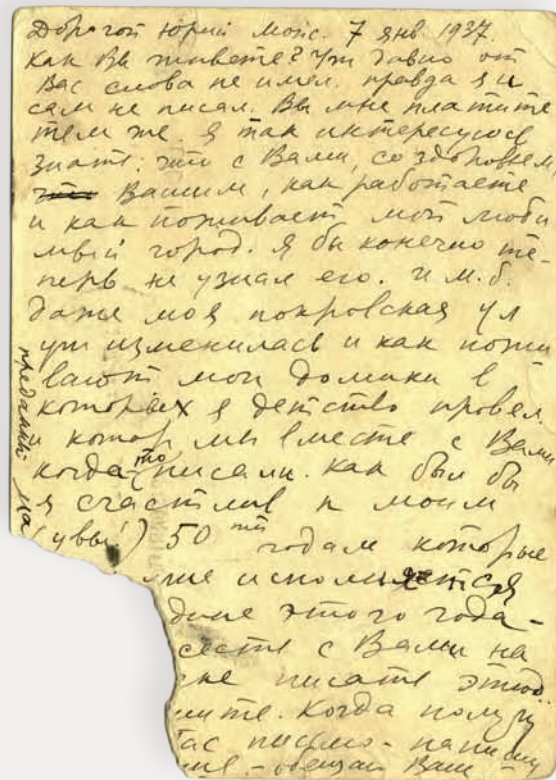 Дорогой Юрий Моис. 7 янв 1937.
Как Вы живете? Уж давно от
Вас слова не имел. правда я и
сам не писал. Вы мне платите
тем же. Я так интересуюсь
знать: что с Вами, со здоровьем
что Вашим, как работаете
и как поживает мой люби
мый город. Я бы конечно те-
перь не узнал его. И м.б.
даже моя покровская ул
уж изменилась и как пожи
вают мои домики в
которых я детство провел.
и котор мы вместе с Вами
когда-то писали. Как был бы
я счастлив к моим
(увы!) 50ти годам которые
мне исполняется
дине этого года-
сесть с Вами на
не писать этюд..
шите. Когда получу
ас письмо - напишу
- обещаю Вам
преданный